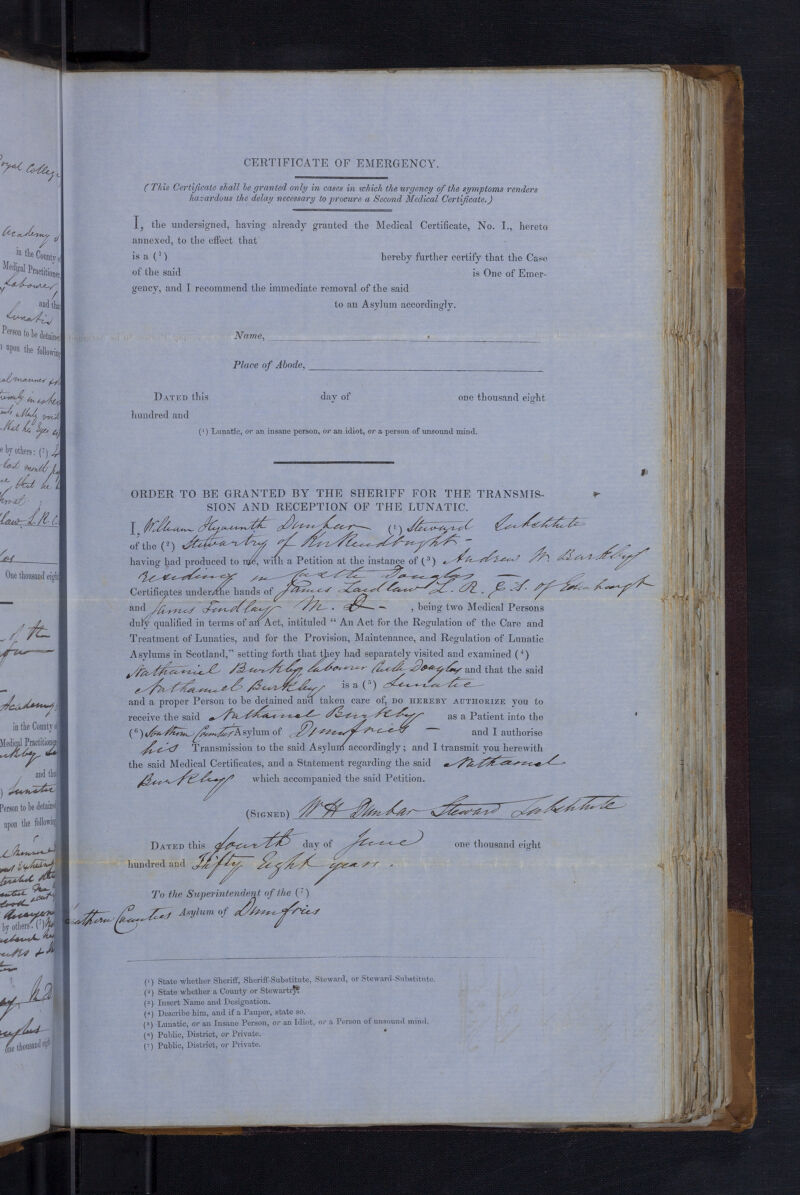 CERTIFICATE OF EMERGENCY.
(This Certificate shall be granted only in cases in which the urgency of the symptoms renders
hazardous the delay necessary to procure a Second Medical Certificate.)
I, the undersigned, having already granted the Medical Certificate, No. I., hereto
annexed, to the effect that
is a (¹) hereby further certify that the Case
of the said is One of Emer-
gency, and I recommend the immediate removal of the said
to an Asylum accordingly.
Name,
Place of Abode,
DATED this day of one thousand eight
hundred and
(¹) Lunatic, or an insane person, or an idiot, or a person of unsound mind.
ORDER TO BE GRANTED BY THE SHERIFF FOR THE TRANSMIS-
SION AND RECEPTION OF THE LUNATIC.
I, William Hyacinth Dunbar (¹) Steward Substitute
of the (²) Stewartry of Kirkcudbright -
having had produced to me, with a Petition at the instance of (³) Andrew
residing in Castle Douglas -
Certificates under the hands of James Laidlaw L. R. C. S. of Edinburgh
and James M. D - , being two Medical Persons
duly qualified in terms of an Act, intituled “ An Act for the Regulation of the Care and
Treatment of Lunatics, and for the Provision, Maintenance, and Regulation of Lunatic
Asylums in Scotland,” setting forth that they had separately visited and examined (⁴)
Nathaniel Burkby labourer Castle Douglas and that the said
Nathaniel Burkby is a (⁵) Lunatic
and a proper Person to be detained and taken care of, DO HEREBY AUTHORIZE you to
receive the said Nathaniel Burkby as a Patient into the
(⁶) Southern Counties Asylum of Dumfries - and I authorise
his Transmission to the said Asylum accordingly ; and I transmit you herewith
the said Medical Certificates, and a Statement regarding the said Nathaniel
Burkby which accompanied the said Petition.
(SIGNED) W H Dunbar Steward Substitute
DATED this fourth day of June one thousand eight
hundred and Fifty Eight years .
To the Superintendent of the (⁷)
Southern Counties Asylum of Dumfries
(¹) State whether Sheriff, Sheriff-Substitute, Steward, or Steward-Substitute.
(²) State whether a County or Stewartry.
(³) Insert Name and Designation.
(⁴) Describe him, and if a Pauper, state so.
(⁵) Lunatic, or an Insane Person, or an Idiot, or a Person of unsound mind.
(⁶) Public, District, or Private.
(⁷) Public, District, or Private.